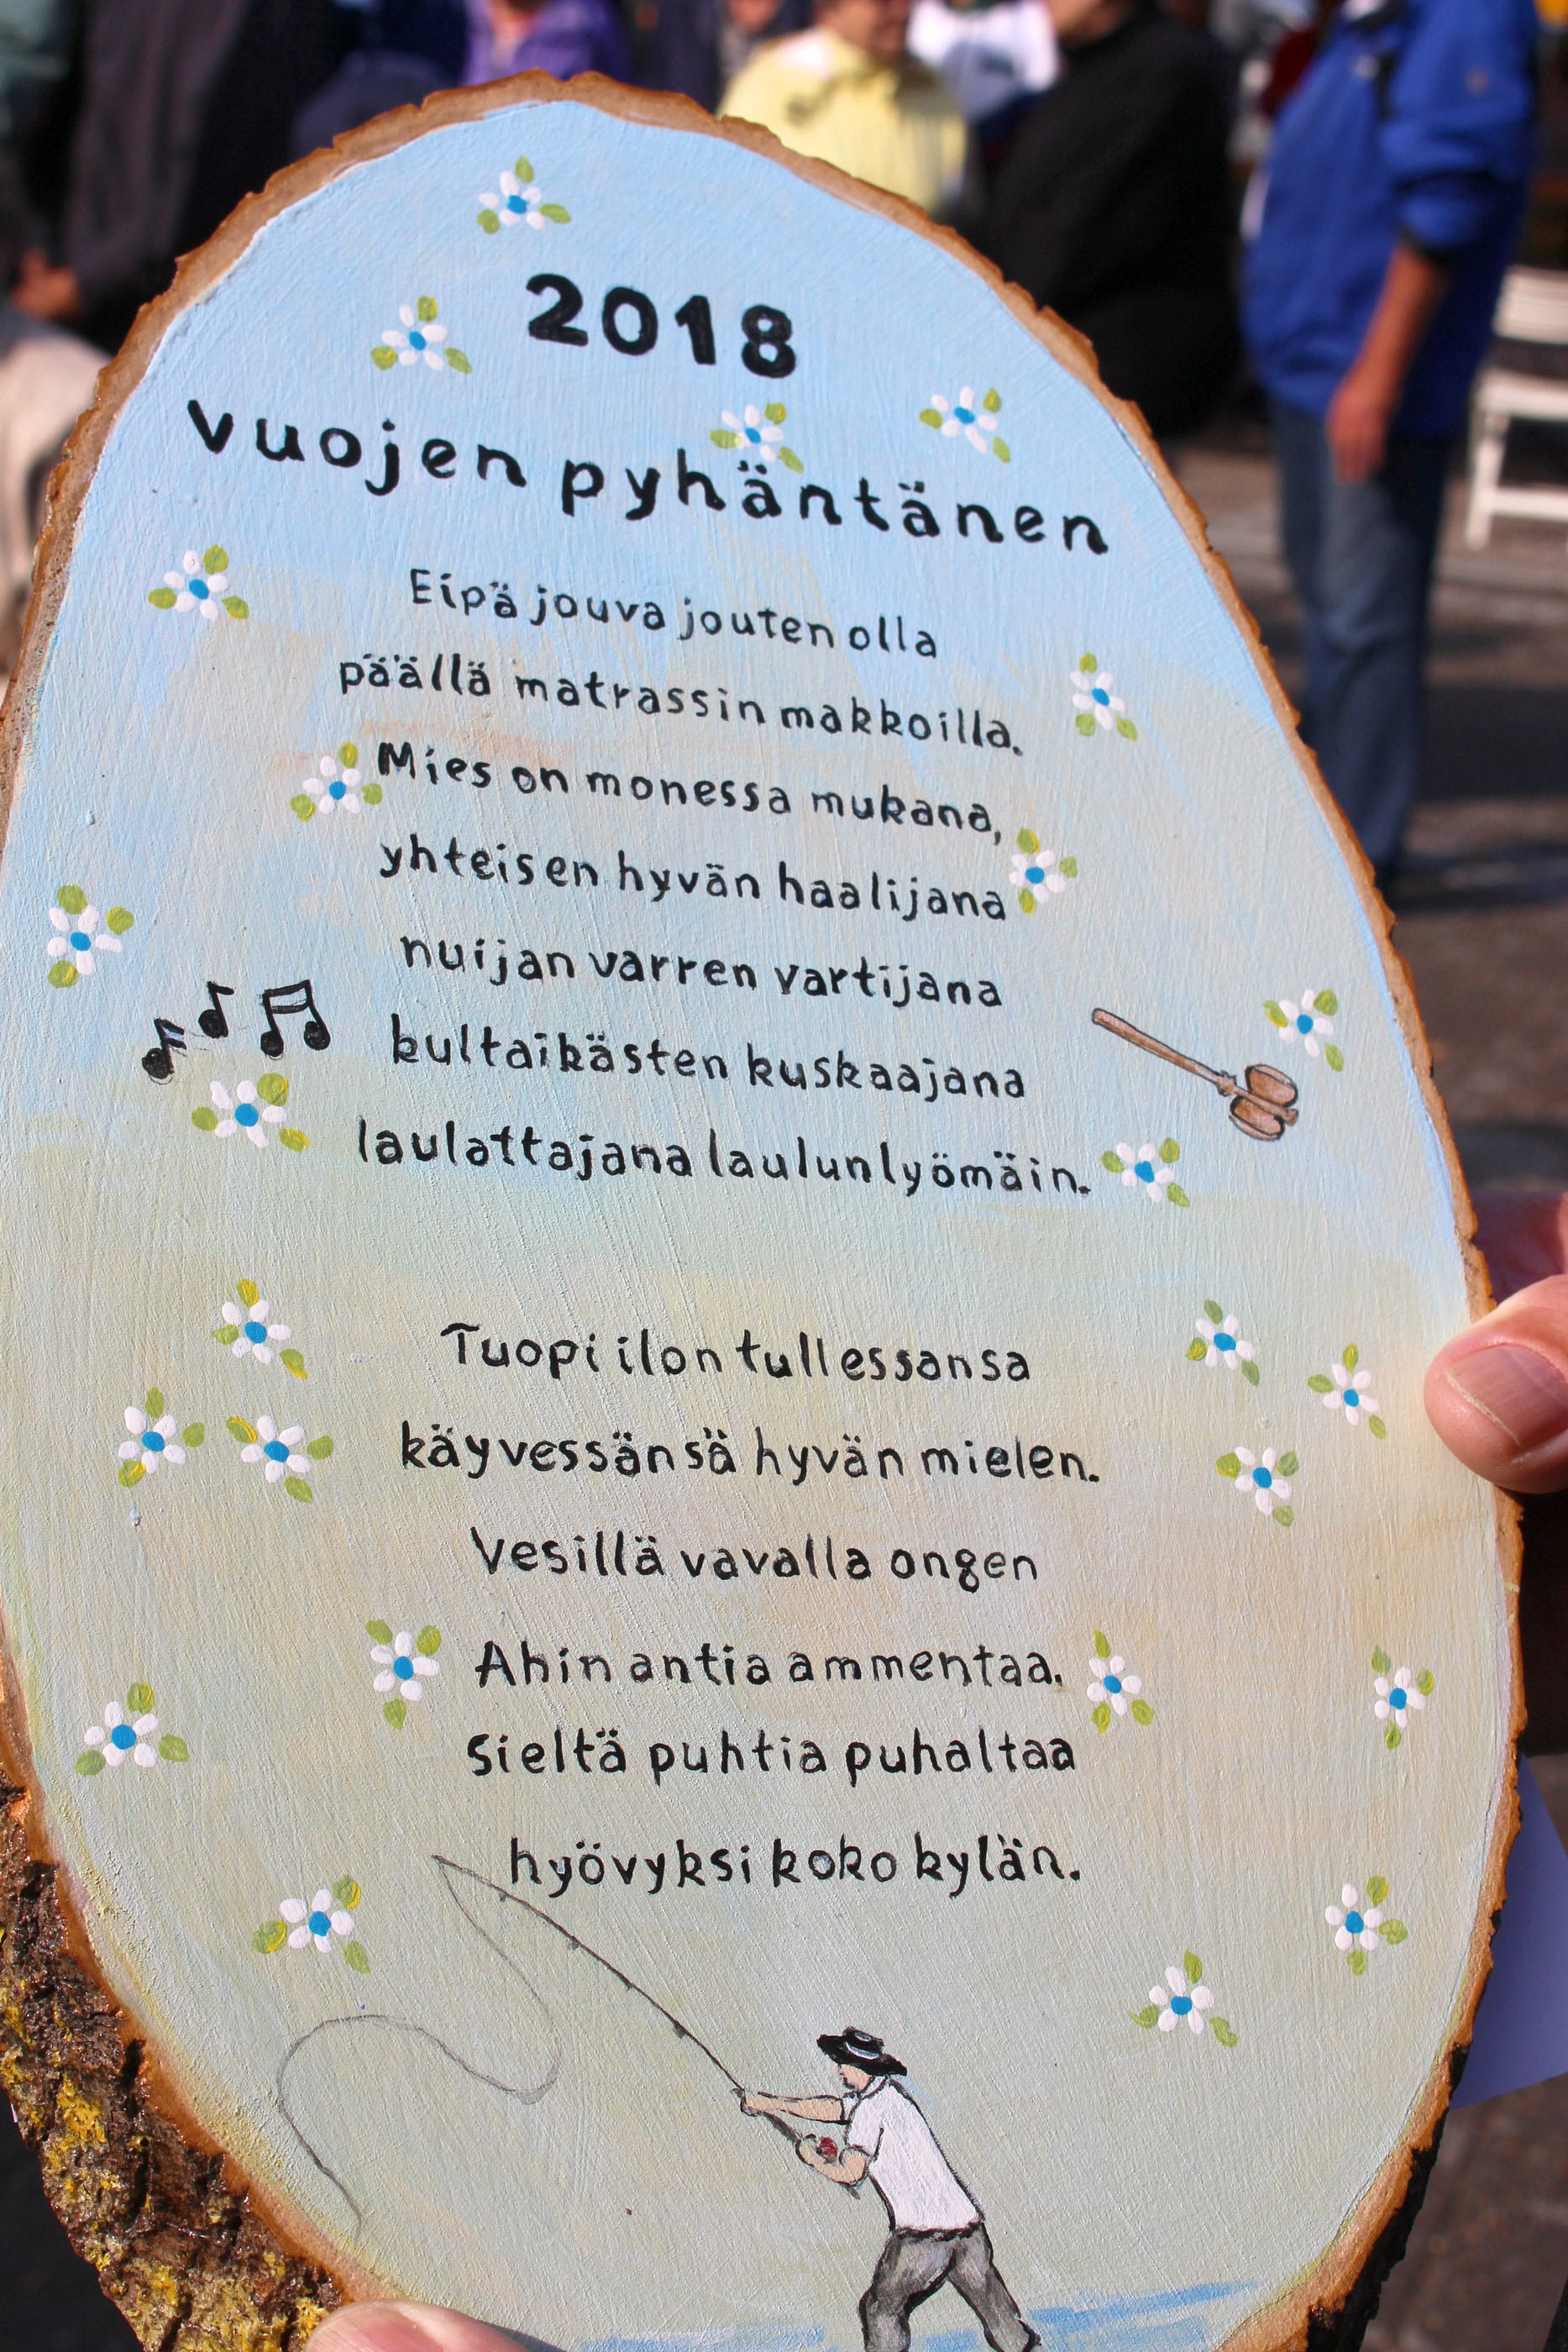 2018
vuojen pyhäntänen
Eipä jouva jouten olla
päällä matrassin makkoilla.
Mies on monessa mukana,
yhteisen hyvän haalijana
nuijan varren vartijana
kultaikästen kuskaajana
laulattajana laulunlyömäin.
Tuopi ilon tullessansa
käyvessänsä hyvän mielen.
Vesillä vavalla ongen
Ahin antia ammentaa.
Sieltä puhtia puhaltaa
hyövyksi koko kylän.